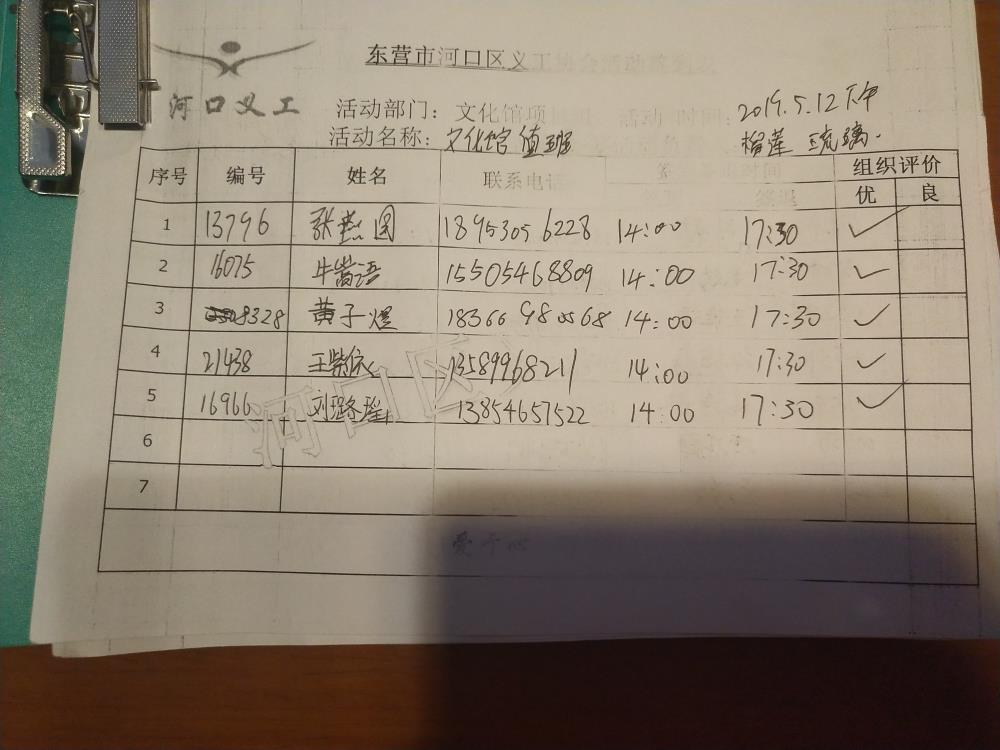 东营市河口区义工协会活动签到表
河口义工
活动部门: 文化馆项目组 活动 时间: 2019.5.12下午
活动名称: 文化馆值班
序号 编号 姓名 联系电话 组织评价
优 良
1 13796 张 18953056228 14:00 17:30 ✓
2 16075 牛 15505468809 14:00 17:30 ✓
3 8328 黄子煜 18366980568 14:00 17:30 ✓
4 21438 王紫依 13589968211 14:00 17:30 ✓
5 16966 刘璐瑶 13854657522 14:00 17:30 ✓
6
7
河口区
爱于心